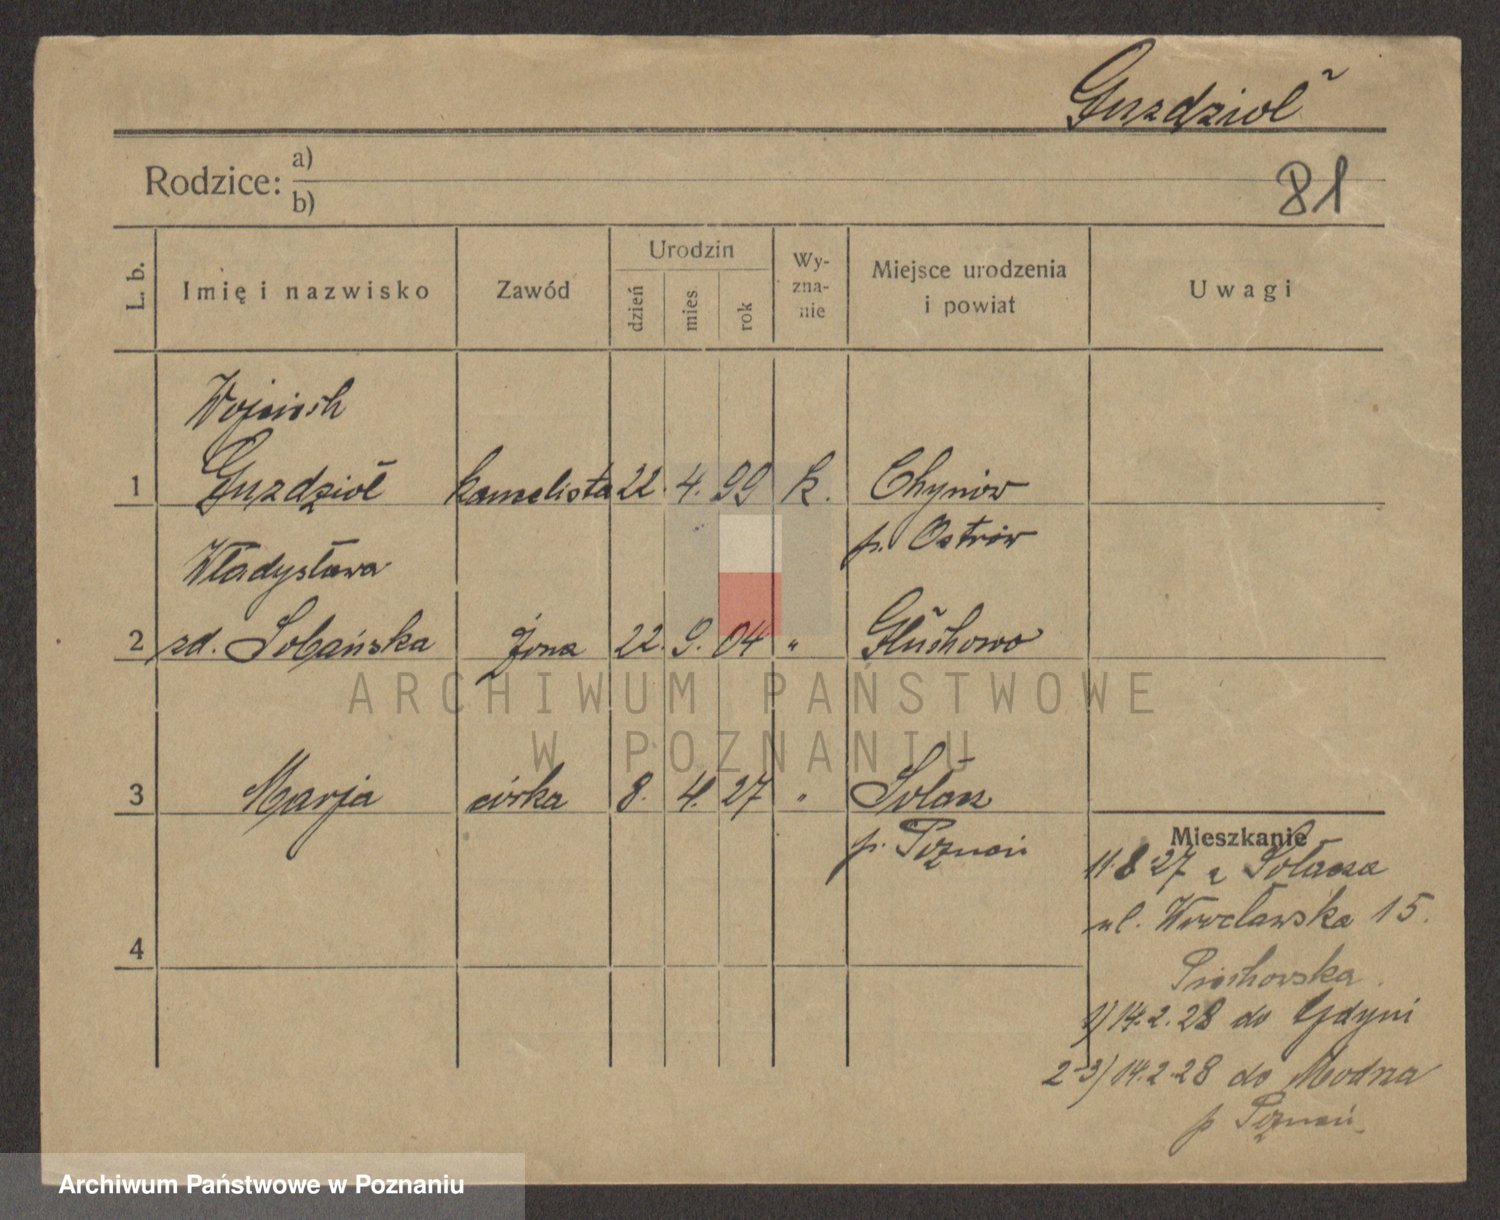 Guździoł
Rodzice: a)
b)
81
L. b.
Imię i nazwisko
Zawód
Urodzin
dzień
mies
rok
Wy-
zna-
nie
Miejsce urodzenia
i powiat
Uwagi
Wojciech
1 Guździoł kancelista 22. 4. 99 k. Chynów
p. Ostrów
Władysława
2 zd. Sobańska żona 22. 9. 04 " Głuchowo
3 Marja córka 8. 4. 27 " Sołacz
p. Poznań
4
Mieszkanie
11.8.27 z Sołacza
ul. Wrocławska 15.
1) 14.2.28 do Gdyni
2-3) 14.2.28 do
p Poznań
ARCHIWUM PAŃSTWOWE
W POZNANIU
Archiwum Państwowe w Poznaniu